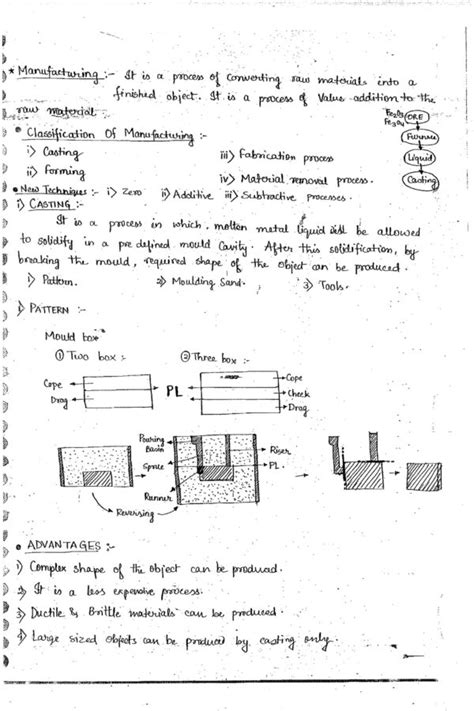 * Manufacturing :- It is a process of converting raw materials into a
finished object. It is a process of Value addition to the
raw material.
Fe2O3
Fe3O4
ORE
Furnace
Liquid
Casting
• Classification Of Manufacturing :-
i) Casting
iii) Fabrication process
ii) Forming
iv) Material removal process.
• New Techniques :- i) Zero ii) Additive iii) Subtractive processes.
i) CASTING :-
It is a process in which, molten metal liquid will be allowed
to solidify in a pre defined mould Cavity. After this solidification, by
breaking the mould, required shape of the object can be produced.
1) Pattern. 2) Moulding Sand. 3) Tools.
1) PATTERN :-
Mould box
① Two box :- ② Three box :-
Cope
Drag
PL
Cope
Cheek
Drag
Pouring
Basin
Sprue
Runner
Riser
PL.
Reversing
• ADVANTAGES :-
1) Complex shape of the object can be produced.
2) It is a less expensive process.
3) Ductile & Brittle materials can be produced.
4) Large sized objects can be produced by casting only.